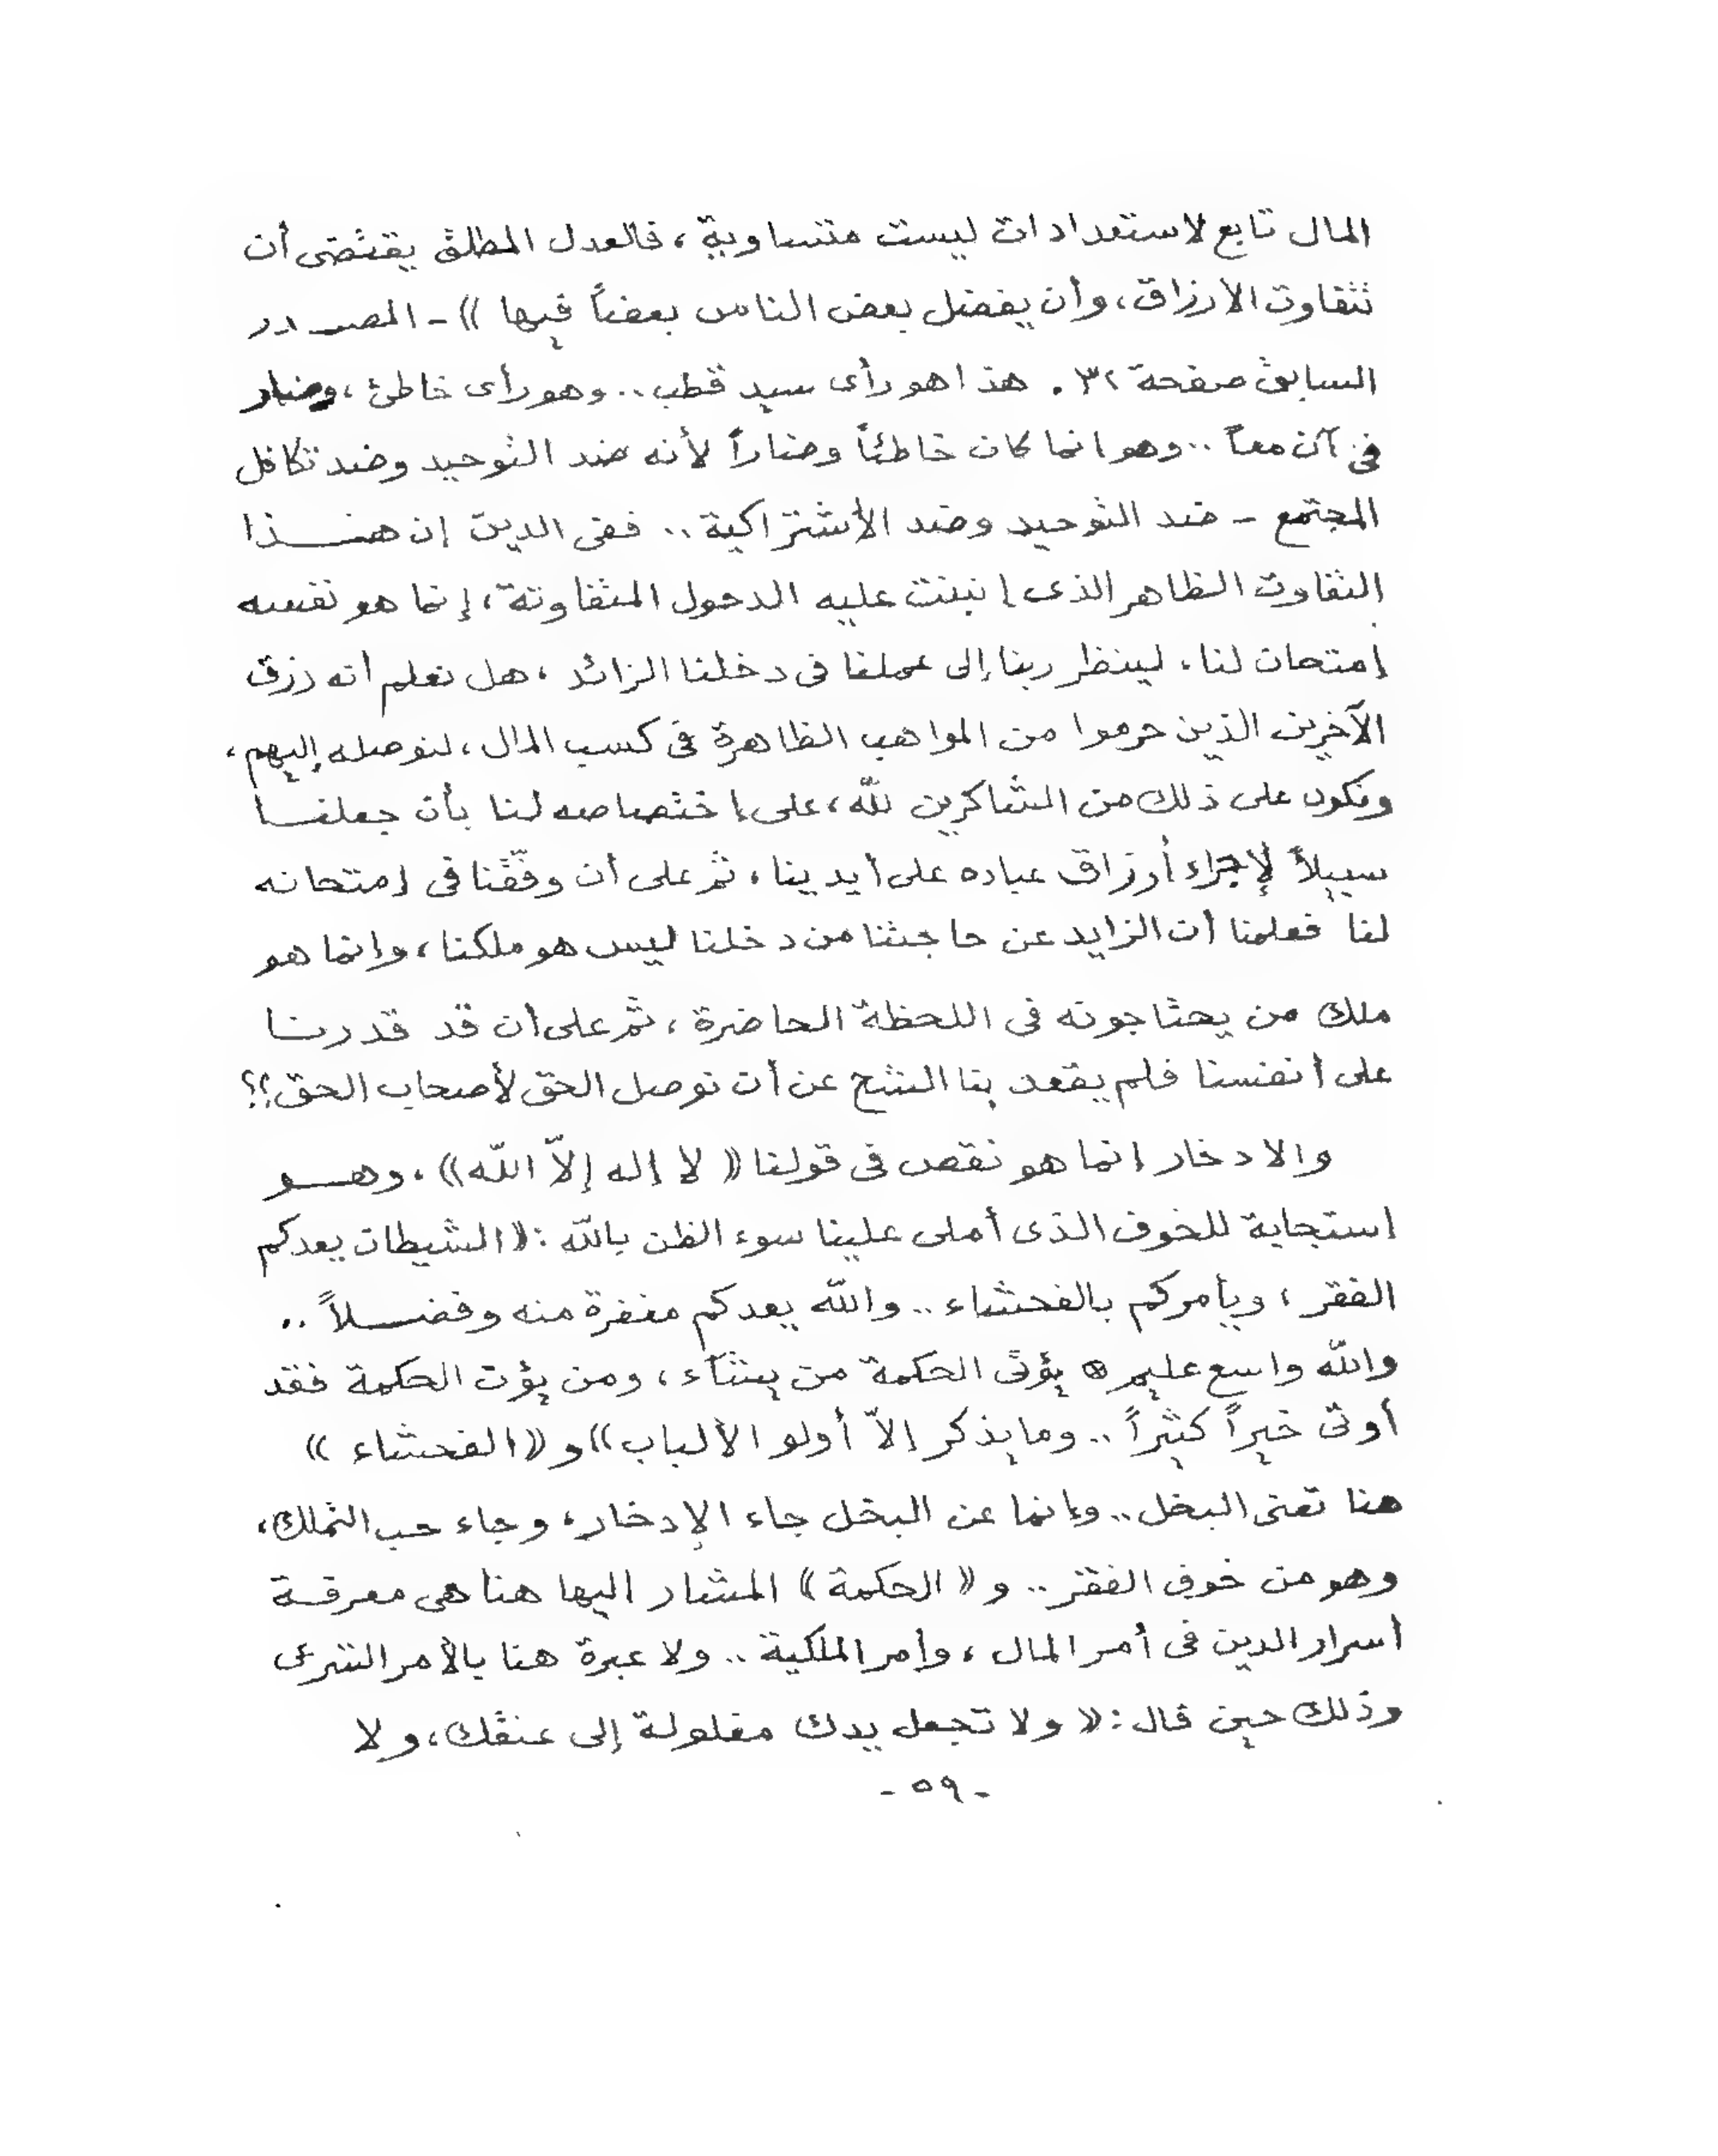 المال تابع لاستعدادات ليست متساوية، فالعدل المطلق يقتضى أن
تتفاوت الارزاق، وأن يفضل بعض الناس بعضاً فيها )) - المصــدر
السابق صفحة ٣٢ . هذا هو رأى سيد قطب.. وهو رأى خاطئ، وضار
فى آن معاً .. وهو انما كان خاطئاً وضاراً لأنه ضد التوحيد وضد تكافل
المجتمع - ضد التوحيد وضد الأشتراكية .. ففى الدين إن هــذا
التفاوت الظاهر الذى انبنت عليه الدخول المتفاوتة، إنما هو نفسه
إمتحان لنا، لينظر ربنا إلى عملنا فى دخلنا الزائد، هل نعلم أنه رزق
الآخرين الذين حرموا من المواهب الظاهرة فى كسب المال، لنوصله إليهم،
ونكون على ذلك من الشاكرين للّه، على إختصاصه لنا بأن جعلنــا
سبيلاً لإجراء أرزاق عباده على أيدينا، ثم على أن وفّقنا فى إمتحانه
لنا فعلمنا أن الزايد عن حاجتنا من دخلنا ليس هو ملكنا، وانما هو
ملك من يحتاجونه فى اللحظة الحاضرة، ثم على أن قد قدرنــا
على أنفسنا فلم يقعد بنا الشح عن أن نوصل الحق لأصحاب الحق؟؟
والادخار إنما هو نقص فى قولنا (( لا إله إلاّ اللّه))، وهــو
إستجابة للخوف الذى أملى علينا سوء الظن باللّه : ((الشيطان يعدكم
الفقر، ويأمركم بالفحشاء .. واللّه يعدكم مغفرة منه وفضــلاً ..
واللّه واسع عليم ⊗ يؤتى الحكمة من يشآء، ومن يؤت الحكمة فقد
أوتى خيراً كثيراً .. ومايذكر إلاّ أولو الألباب)) و ((الفحشاء ))
هنا تعنى البخل .. وإنما عن البخل جاء الإدخار، وجاء حب التملك،
وهو من خوف الفقر .. و (( الحكمة )) المشار اليها هنا هى معرفــة
أسرار الدين فى أمر المال، وأمر الملكية .. ولا عبرة هنا بالأمر الشرعى
وذلك حين قال : (( ولا تجعل يدك مغلولة إلى عنقك، ولا
- ٥٩ -